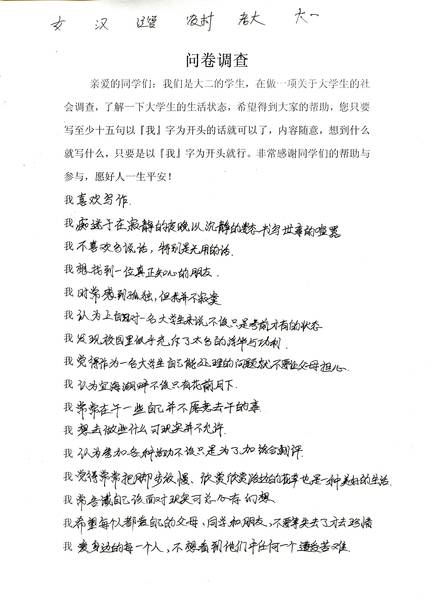 女 汉 农村 老大 大一
问卷调查
亲爱的同学们：我们是大二的学生，在做一项关于大学生的社
会调查，了解一下大学生的生活状态，希望得到大家的帮助，您只要
写至少十五句以『我』字为开头的话就可以了，内容随意，想到什么
就写什么，只要是以『我』字为开头就行。非常感谢同学们的帮助与
参与，愿好人一生平安！
我喜欢写作.
我痴迷于在寂静的夜晚以沉静的
我不喜欢多说话，特别是无用的话.
我想找到一位真正知心的朋友.
我时常感到孤独，但并不寂寞
我认为上自习对一名大学生来说不该只是考前才有的状态
我发现校园里似乎充斥了太多的浮华与功利.
我觉得作为一名大学生自己能处理的问题就不要让父母担心.
我认为 海湖畔不该只有花前月下.
我常常在干一些自己并不愿意去干的事
我想去做些什么可现实并不允许.
我认为参加各种活动不该只是为了加综合测评.
我觉得常常把脚步放慢、欣赏欣赏路边的花草也是一种美好的生活.
我常告诫自己该面对现实可总会存幻想.
我希望每个人都爱自己的父母、同学和朋友，不要等失去了才去珍惜
我爱身边的每一个人，不想看到他们中任何一个遭受苦难.